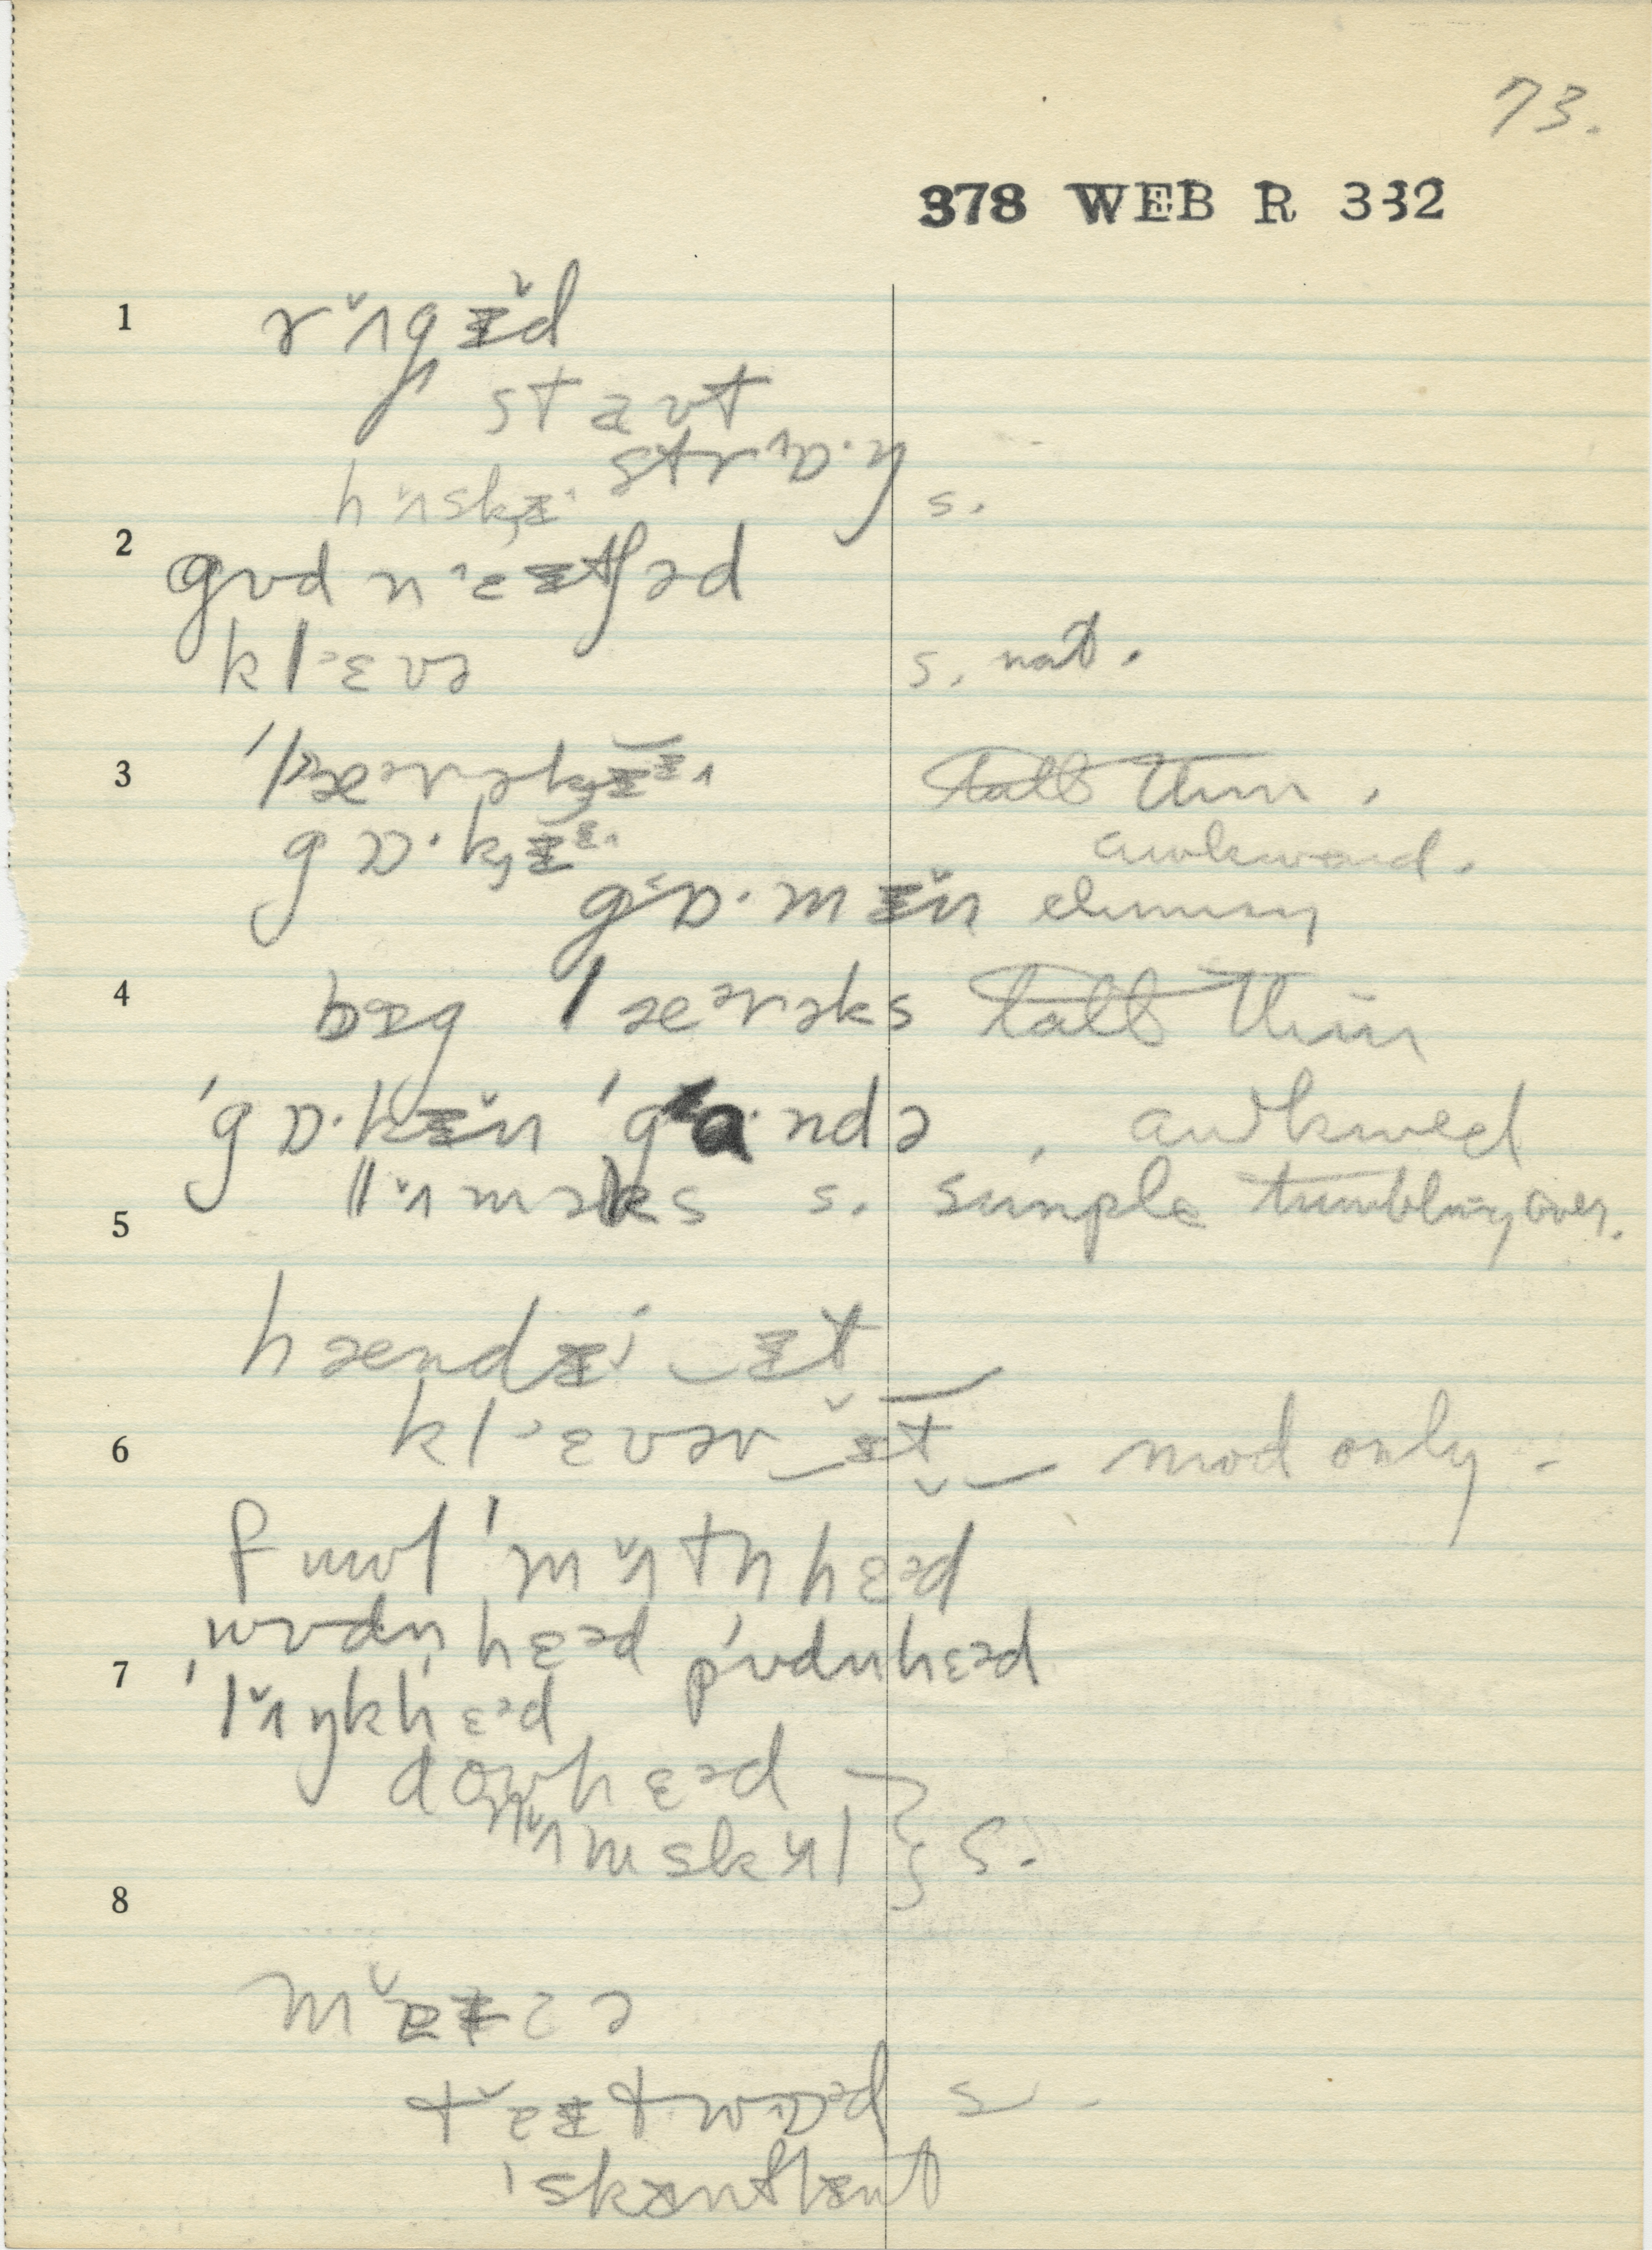 73.
378 WEB R 332
1 rʌ̌gᵻ̆d
staʊt
strɒ̂·ŋ
hʌ̌skᵻ s.
2 gʊd nᵻtʃəd
klɛvə s. nat.
3 ˈlæərəkᵻ tall thin.
gɒ·kᵻ awkward.
gɒ·mᵻ̆n clumsy
4 bɪg læərəks tall thin
ˈgɒ·kᵻ̆n ˈga·ndə , awkward
lʌ̌məks s. simple tumbling over.
5
hændᵻi‿ᵻt
6 klɛvər‿ᵻt mod only -
fuul ˈmʌ̌tnhɛəd
wʊdnhɛəd pʊdnhɛəd
7 ˈlʌ̌ŋkhɛəd
doʊhɛəd
nʌ̌mskʌ̌l } s.
8
tɒəd s.
ˈskᵻnflᵻnt